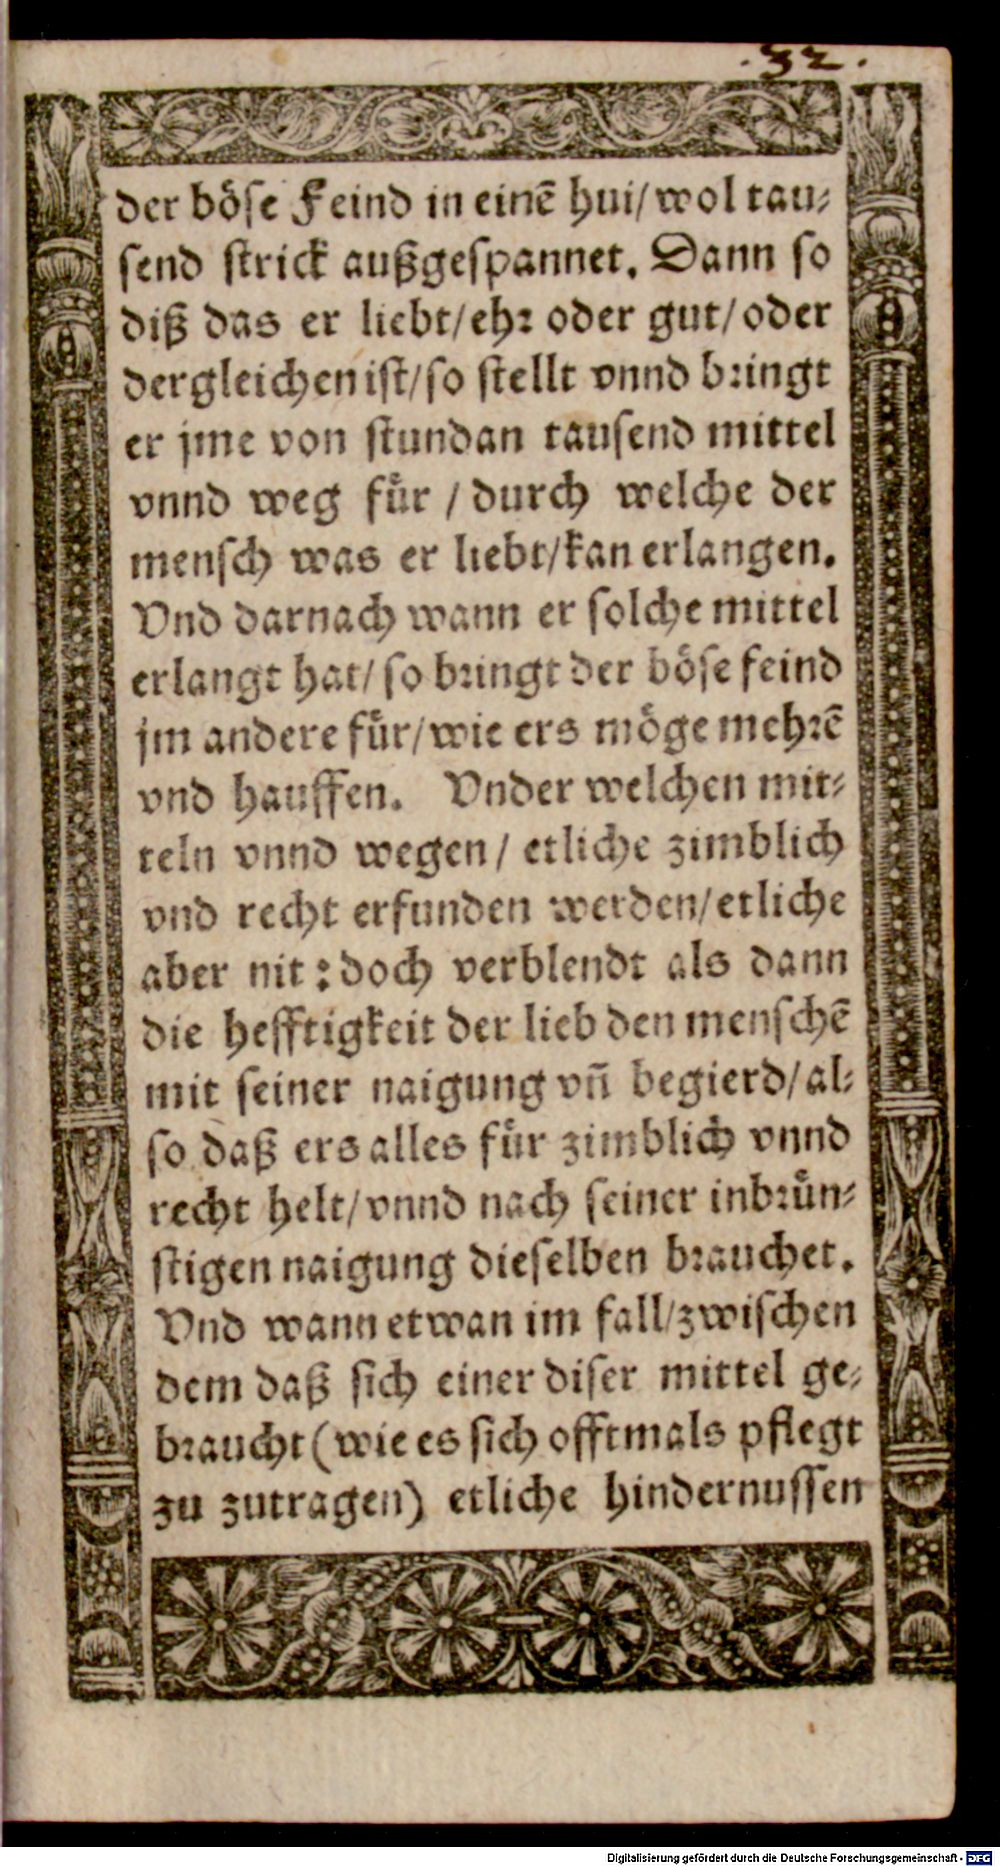 .32.
der böse Feind in einē hui/wol tau⸗
send strick außgespannet. Dann so
diß das er liebt/ehr oder gut/oder
dergleichen ist/so stellt vnnd bringt
er jme von stundan tausend mittel
vnnd weg für / durch welche der
mensch was er liebt/kan erlangen.
Vnd darnach wann er solche mittel
erlangt hat/ so bringt der böse feind
jm andere für/wie ers möge mehrē
vnd hauffen. Vnder welchen mit⸗
teln vnnd wegen/ etliche zimblich
vnd recht erfunden werden/etliche
aber nit : doch verblendt als dann
die hefftigkeit der lieb den menschē
mit seiner naigung vn̄ begierd/al⸗
so daß ers alles für zimblich vnnd
recht helt/vnnd nach seiner inbrün⸗
stigen naigung dieselben brauchet.
Vnd wann etwan im fall/zwischen
dem daß sich einer diser mittel ge⸗
braucht (wie es sich offtmals pflegt
zu zutragen) etliche hindernussen
Digitalisierung gefördert durch die Deutsche Forschungsgemeinschaft - DFG